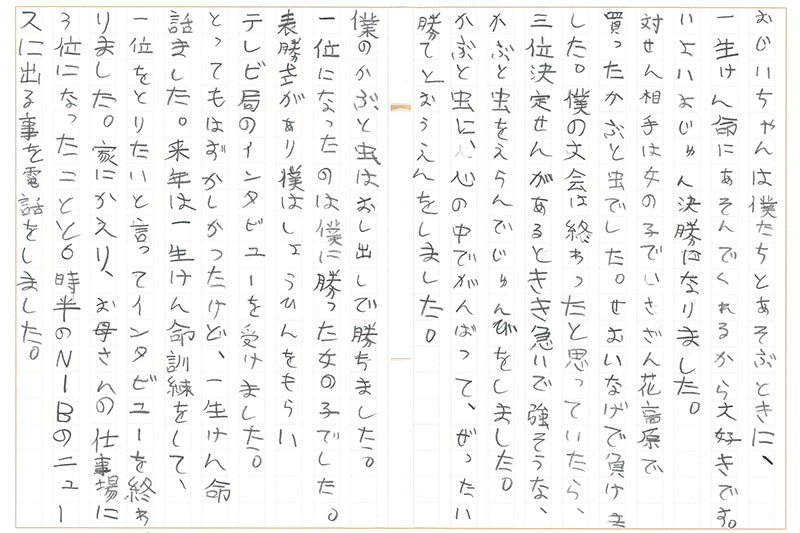 おじいちゃんは僕たちとあそぶときに、
一生けん命にあそんでくれるから大好きです。
いよいよじゅん決勝になりました。
対せん相手は女の子でいさざん花高原で
買ったかぶと虫でした。せおいなげで負けま
した。僕の大会は終わったと思っていたら、
三位決定せんがあるときき急いで強そうな、
かぶと虫をえらんでじゅんびをしました。
かぶと虫に、心の中でがんばって、ぜったい
勝てとおうえんをしました。
僕のかぶと虫はおし出しで勝ちました。
一位になったのは僕に勝った女の子でした。
表勝式があり僕はしょうひんをもらい
テレビ局のインタビューを受けました。
とってもはずかしかったけど、一生けん命
話きした。来年は一生けん命訓練をして、
一位をとりたいと言ってインタビューを終わ
りました。家にかえり、お母さんの仕事場に
3位になったことと6時半のNIBのニュー
スに出る事を電話をしました。